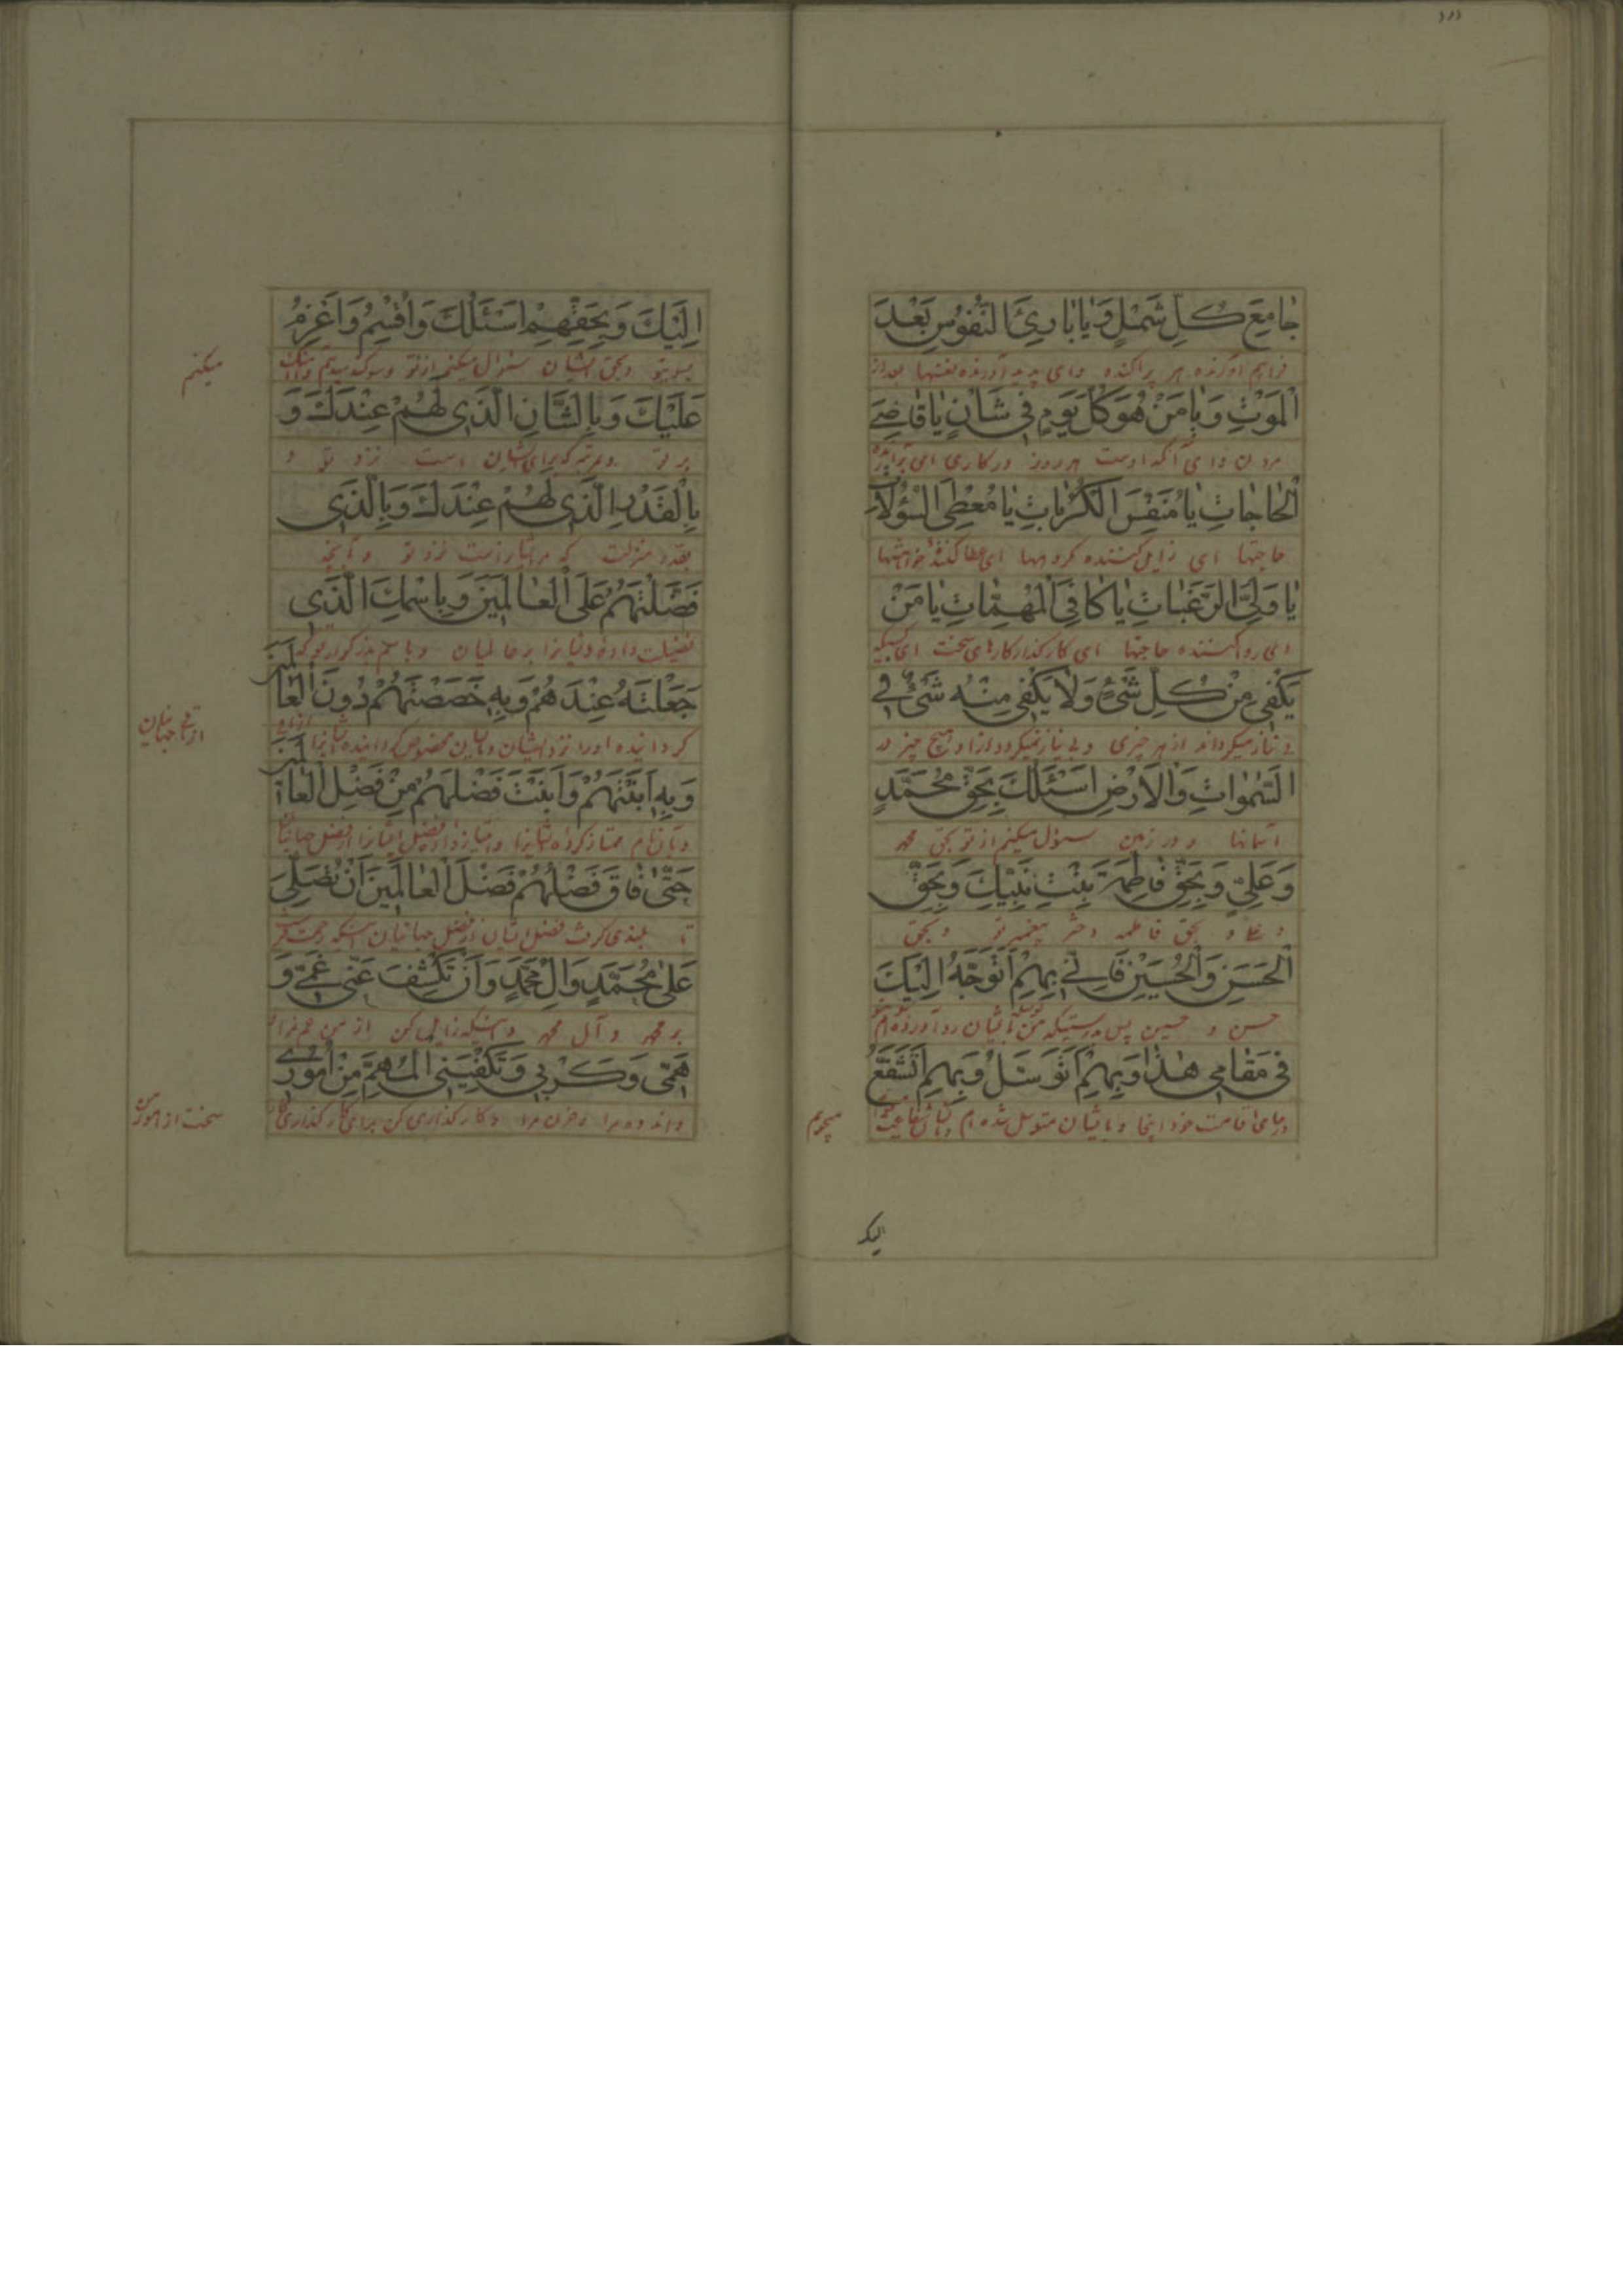 جامِعَ كُلِّ شَمْلٍ وَيا بارِئَ النُّفُوسِ بَعْدَ
فراهم آورنده هر پراکنده وای پدید آورنده نفسها بعد از
الْمَوْتِ وَيا مَنْ هُوَ كُلَّ يَوْمٍ في شَأْنٍ يا قاضِيَ
مردن وای آنکه اوست هر روز در کاری ای برآرنده
الْحاجاتِ يا مُنَفِّسَ الْكُرُباتِ يا مُعْطِيَ السُّؤُلاتِ
حاجتها ای زایل کننده کربها ای عطا کننده خواهشها
يا وَلِيَّ الرَّغَباتِ يا كافِيَ الْمُهِمّاتِ يا مَنْ
ای روا کننده حاجتها ای کارگذار کارهای سخت ای کسیکه
يَكْفي مِنْ كُلِّ شَيْءٍ وَلا يَكْفي مِنْهُ شَيْءٌ في
بی نیاز میگرداند از هر چیزی و بی نیاز نمیگرداند از او هیچ چیز در
السَّمٰواتِ وَالْاَرْضِ اَسْئَلُكَ بِحَقِّ مُحَمَّدٍ
آسمانها و در زمین سئوال میکنم از تو بحق محمد
وَعَلِيٍّ وَبِحَقِّ فاطِمَةَ بِنْتِ نَبِيِّكَ وَبِحَقِّ
و علی و بحق فاطمه دختر پیغمبر تو و بحق
الْحَسَنِ وَالْحُسَيْنِ فَاِنّي بِهِمْ اَتَوَجَّهُ اِلَيْكَ
حسن و حسین پس بدرستیکه من بایشان رو آورده ام
في مَقامي هٰذا وَبِهِمْ اَتَوَسَّلُ وَبِهِمْ اَتَشَفَّعُ
در جای اقامت خود اینجا و بایشان متوسل شده ام و بایشان شفاعت
میجویم
الیک
اِلَيْكَ وَبِحَقِّهِمْ اَسْئَلُكَ وَاُقْسِمُ وَاَعْزِمُ
بسوی تو و بحق ایشان سئوال میکنم از تو و سوگند میدهم
میکنم
عَلَيْكَ وَبِالشَّأْنِ الَّذي لَهُمْ عِنْدَكَ وَ
بر تو و بمرتبه که برای ایشان است نزد تو و
بِالْقَدْرِ الَّذي لَهُمْ عِنْدَكَ وَبِالَّذي
بقدر و منزلت که مر ایشانراست نزد تو و بآنچه
فَضَّلْتَهُمْ عَلَى الْعالَمينَ وَبِاسْمِكَ الَّذي
فضیلت داده ایشانرا بر عالمیان و باسم مذکور تو که
جَعَلْتَهُ عِنْدَهُمْ وَبِهِ خَصَصْتَهُمْ دُونَ الْعالَمينَ
گردانیده او را نزد ایشان و باین مخصوص گردانیده ایشانرا
جهانیان
وَبِهِ اَبَنْتَهُمْ وَاَبَنْتَ فَضْلَهُمْ مِنْ فَضْلِ الْعالَمينَ
و بآن نام ممتاز کرده ایشانرا و ممتاز داده فضل ایشانرا از فضل جهانیان
حَتّى فاقَ فَضْلُهُمْ فَضْلَ الْعالَمينَ اَنْ تُصَلِّيَ
تا بلندی گرفت فضل ایشان از فضل جهانیان اینکه رحمت
عَلى مُحَمَّدٍ وَآلِ مُحَمَّدٍ وَاَنْ تَكْشِفَ عَنّي غَمّي وَ
بر محمد و آل محمد و اینکه زایل کن از من غم مرا
هَمّي وَكَرْبي وَتَكْفِيَنِي الْمُهِمَّ مِنْ اُمُوري
و اندوه مرا و حزن مرا و کارگذاری کن برای
سخت از امور من